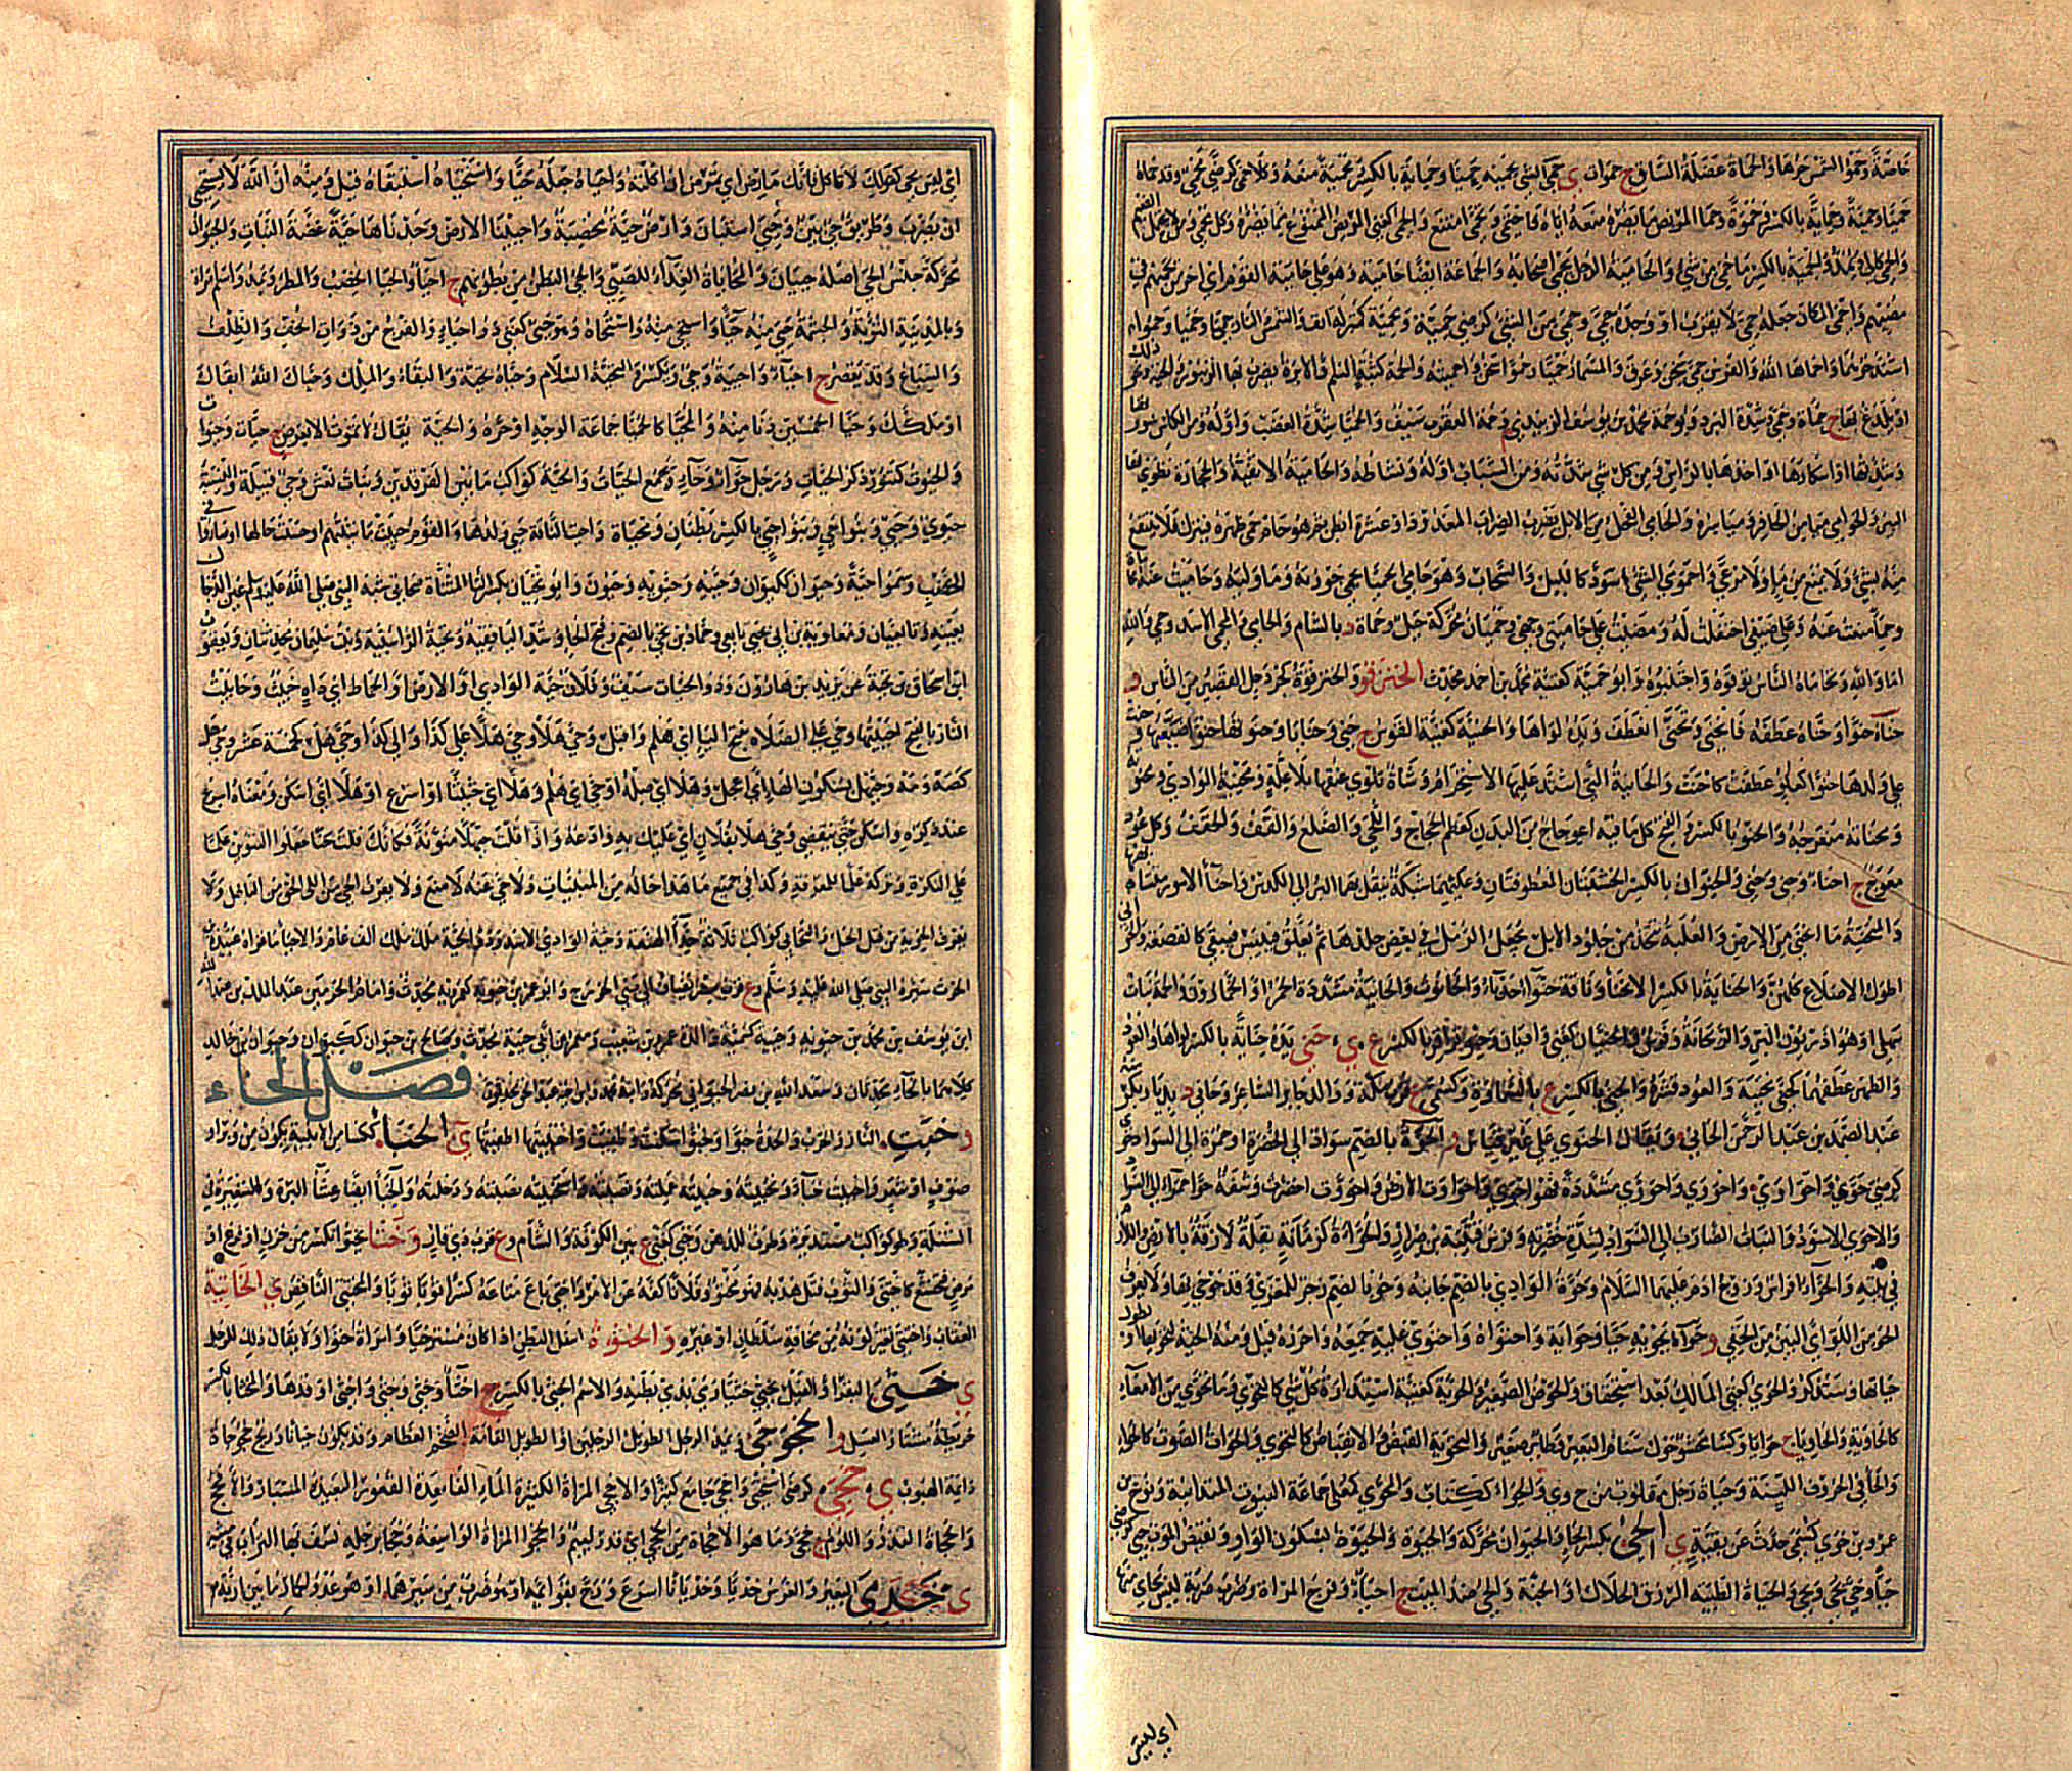 خاصة وحمو الشمس حرها والحماة عضلة الساق ج حموات ي حمى الشي يحميه حميا وحماية بالكسر ومحمية منعه وكلا حمى كرضى محمى وقد حماه
حميا وحمية وحماية بالكسر وحموة وحمى المريض ما يضره منعه اياه فاحتمى وتحمى امتنع والحمى كغنى المريض الممنوع مما يضره وكل محمى ومن لا يحتمل الضيم
والحمى كالى ويمد والحمية بالكسر ما حمى من شي والحامية الرجل يحمى اصحابه والجماعة ايضا حامية وهو على حامية القوم اى اخر من يحميهم في
مضيهم واحمى المكان جعله حمى لا يقرب او وجده حمى وحمى من الشى كرضى حمية ومحمية كمنزلة انف والشمس والنار حميا وحميا وحموا
اشتد حرهما واحماها الله والفرس حمى سخن وعرق والمسمار حميا وحموا سخن واحميته والحمة كثبة السم او الابرة يضرب بها الزنبور والحية ونحو ذلك
او يلدغ بها ج حمات وحمى وشدة البرد وابو حمة محمد بن يوسف الزبيدى وحمة العقرب سيف والحميا شدة الغضب واوله ومن الكاس سورتها
وشدتها او اسكارها او اخذها بالراس ومن كل شى شدته ومن الشباب اوله ونشاطه والحامية الاثفية والحجارة تطوى بها
البئر والحوامى ميامن الحافر ومياسره والحامى الفحل من الابل يضرب الضراب المعدود او عشرة ابطن ثم هو حام حمى ظهره فيترك فلا ينتفع
منه بشئ ولا يمنع من ماء ولا مرعى واحمومى الشئ اسود كالليل والسحاب وهو حامى الحميا يحمى حوزته وما وليه وحاميت عنه محاماة
وحماء منعت عنه وعلى ضيفى احتفلت له ومضيت على حاميتى وجهى وحميان محركة جبل وحماة د بالشام والحامى والمحمى الاسد وحمى والله
اما والله وتحاماه الناس توقوه واجتنبوه وابو حمية كغنية محمد بن احمد محدث الحنزقو والحنزقوة كجردحل القصير من الناس و
حناه حنوا وحناه عطفه فانحنى وتحنى انعطف ويده لواها والحنية كغنية القوس ج حنى وحنايا وحنوتها حنوا صنعتها وحنت
على ولدها حنوا كعلو عطفت كاحنت والحانية التى اشتد عليها الاستحرام وشاة تلوى عنقها بلا علة ومحنية الوادى ومحنوته
ومحناته منعرجه والحنو بالكسر والفتح كل ما فيه اعوجاج من البدن كعظم الحجاج واللحى والضلع والقف والحقف وكل عود
معوج ج احناء وحنى وحنى والحنوان بالكسر الخشبتان المعطوفتان وعليهما شبكة ينقل بها البر الى الكدس واحناء الامور متشابهها
والمحنية ما انحنى من الارض والعلبة تتخذ من جلود الابل يجعل الرمل في بعض جلدها ثم يعلق فييبس فيبقى كالقصعة والحوانى
اطول الاضلاع كلهن والحناية بالكسر الانحناء وناقة حنواء حدباء والحانوت والحانية مشددة الخمر او الخمار وذو الحمة نبات
سهلى او هو آذريون البر والريحانة وفرس والحنيان كغنى واديان وحنو قراقر بالكسر ع ي حنى يده حناية بالكسر لواها والعود
والظهر عطفهما كحنى تحنية والعود قشره والحنى بالكسر ع بالسماوة وكسمى ع قرب مكة ووالد جابر الشاعر وحانى د بديار بكر منه
عبد الصمد بن عبد الرحمن الحانى ويقال الحنوى على غير قياس و الحوة بالضم سواد الى الخضرة او حمرة الى السواد حوى
كرضى حوى واحواوى واحووى واحووى مشددة فهو احوى واحواوت الارض واحووت اخضرت وشفة حواء حمراء الى السواد
والاحوى الاسود والنبات الضارب الى السواد لشدة خضرته وفرس قتيبة بن ضرار والحواءة كرمانة بقلة لازقة بالارض واللازم
في بيته والحواء افراس وزوج ادم عليهما السلام وحوة الوادى بالضم جانبه وحو بالضم زجر للمعزى وقد حوحى بها ولا يعرف
الحو من اللو اى البين من الخفى و حواه يحويه حيا وحواية واحتواه واحتوى عليه جمعه واحرزه قيل ومنه الحية لتحويها او لطول
حياتها وستذكر والحوى كغنى المالك بعد استحقاق والحوض الصغير والحوية كغنية استدارة كل شى كالتحوى وما تحوى من الامعاء
كالحاوية والحاوياء ج حوايا وكساء محشو حول سنام البعير وطائر صغير والتحوية القبض والانقباض كالتحوى والحوات الصوت كالخوات
والحاء في الحروف اللينة وحياة رجل مقلوب من ح و ى والحواء ككتاب والمحوى كمعلى جماعة البيوت المتدانية ونوح بن
عمرو بن حوى كسمى حدث عن بقية ي الحى بكسر الحاء والحيوان محركة والحيوة والحيوة بسكون الواو ونقيض الموت حيى كرضى
حياة وحى يحى ويحيى والحياة الطيبة الرزق الحلال او الجنة والحى ضد الميت ج احياء وفرج المراة وضرب ضربة ليس بحاى منها
اى ليس
اى ليس يحيى كقولك لا تاكل فانك مارض اى تمرض ان اكلته واحياه جعله حيا واستحياه استبقاه قيل ومنه ان الله لا يستحيى
ان يضرب وطريق حى بين وحيى استبان وارض حية مخصبة واحيينا الارض وجدناها حية غضة النبات والحيوان
محركة جنس الحى اصله حييان والمحاياة الغذاء للصبى والحى البطن من بطونهم ج احياء والحيا الخصب والمطر ويمد واسم امراة
وبالمد التوبة والحشمة حيى منه حياء واستحيى منه واستحياه وهو حيى كغنى ذو احياء والفرج من ذوات الخف والظلف
والسباع وقد يقصر ج احياء واحيية وحى ويكسر والتحية السلام وحياه تحية والبقاء والملك وحياك الله ابقاك
او ملكك وحيا الخمسين دنا منها والمحيا كالحميا جماعة الوجه او حره والحية يقال لا تموت الا بعرض ج حيات وحيوات
والحيوت كتنور ذكر الحيات ورجل حواء وحاو يجمع الحيات والحية كواكب ما بين الفرقدين وبنات نعش وحى قبيلة والنسبة
حيوى وحيى وبنو احى وبنو احيى بالكسر بطنان ومحياة واحيا الناقة حيى ولدها والقوم حييت ماشيتهم او حسنت حالها او صاروا في
الخصب وسموا احية وحيوان ككيوان وحية وحيوية وحيون وابو تحيان بكسر التاء المثناة صحابى شبه النبى صلى الله عليه وسلم عين الدجال
بعينه وتابعيان ومعاوية بن ابى تحيى تابعى وحماد بن تحيى بالضم وفتح الحاء وشد الياء فقيه وتحية الراسبية وبنت سليمان محدثتان ويعقوب
بن اسحاق بن تحية عن يزيد بن هارون وذو الحيات سيف وفلان حية الوادى او الارض او الحماط اى داه خبيث وحاييت
النار بالنفخ احييتها وحى على الصلاة بفتح الياء اى هلم واقبل وحى هلا وحى هلا على كذا والى كذا وحى هل كخمسة عشر وحى هل
كصه ومه وحيهل بسكون الهاء اى اعجل وهلا اى صله او حى اى هلم وهلا اى حثيثا او اسرع او هلا اى اسكن ومعناه اسرع
عند ذكره واسكن حتى تنقضى وحى هلا بفلان اى عليك به وادعه واذا قلت حيهلا منونة فكانك قلت حثا جعلوا التنوين علما
على النكرة وتركه علما للمعرفة وكذا في جميع ما هذا حاله من المبنيات ولا حى عنه لا منع ولا يعرف الحى من اللى الحق من الباطل ولا
يعرف الحوية من فتل الحبل والتحايى كواكب ثلاثة حذاء الهنعة وحية الوادى الاسد وذو الحية ملك ملك الف عام والاحياء ماء غزاه عبيدة بن
الحرث سيره النبى صلى الله عليه وسلم و ع قرب مصر يضاف الى بنى الخزرج وابو عمر بن حيويه كعمرويه محدث وامام الحرمين عبد الملك بن عبد الله
ابن يوسف بن محمد بن حيويه وحيية كسمية والدة عمرو بن شعيب ومعمر بن ابى حيية محدث وصالح بن حيوان ككيوان وحيوان بن خالد
كلاهما بالحاء محدثان وسعد الله بن نصر الحيوانى محركة وابنه محمد وابن اخيه عبد الحق محدثون فصل الخاء
و خبت النار والحرب والحدة خبوا وخبوا سكنت وطفئت واخبيتها اطفيتها ي الخباء ككساء من الابنية يكون من وبر او
صوف او شعر واخبيت خباء وتخبيته وخبيته عملته ونصبته واستخبيته نصبته ودخلته والخباء ايضا غشاء البرة والشعيرة في
السنبلة وكواكب مستديرة وظرف للدهن وخبى كغنى ع بين الكوفة والشام وع قرب ذى قار و ختا يختو انكسر من حزن او فزع او
مرض فتخشع كاختتى والثوب فتل هدبه فهو مختو وفلانا كفه عن الامر واختى باع متاعه كسرا ثوبا ثوبا والمختتى الناقص ي الخاتية
العقاب واختتى تغير لونه من مخافة سلطان او غيره و الخثوة اسفل البطن اذا كان مسترخيا وامراة خثواء ولا يقال ذلك للرجل
ي خثى البقر او الفيل يخثى خثيا رمى بذى بطنه والاسم الخثى بالكسر ج اخثاء وخثى وخثى واخثى اوقدها والخثا بالكسر
خريطة مشتار العسل و الخجوجى ويمد الرجل الطويل الرجلين او الطويل القامة الضخم العظام وقد يكون جبانا وريح خجوجاة
دائمة الهبوب ي خجى كرضى استحى واخجى جامع كثيرا والاخجى المراة الكثيرة الماء الفاسدة القعور البعيدة المسبار والافحج
والخجاة القذر واللؤم ج خجى وما هو الا خجاة من الخجى اى قذر لئيم والخجواء المراة الواسعة وخجا برجله نسف بها التراب في مشيه
ي خدى البعير والفرس خديا وخديانا اسرع وزج بقوائمه او هو ضرب من سيرهما او هو عدو الحمار ما بين اريه